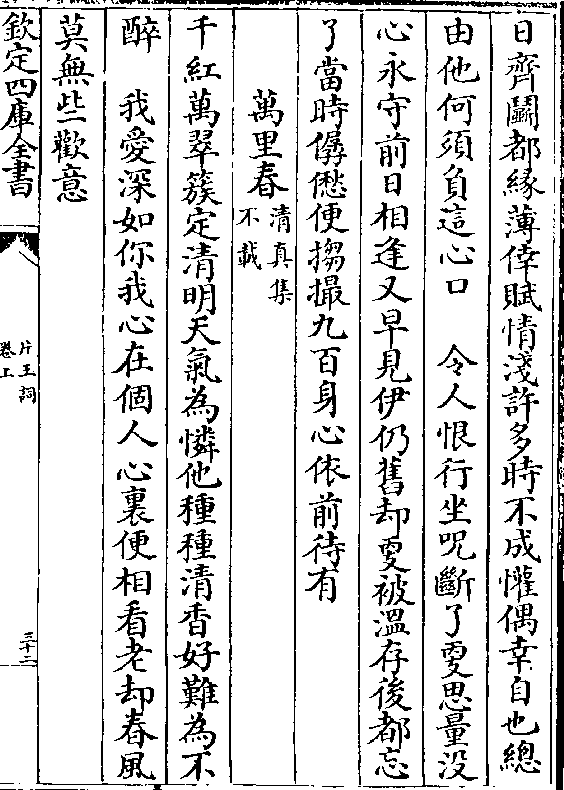 日齊鬭都緣薄倖賦情淺許多時不成懽偶幸自也總
由他何須負這心口　令人恨行坐呪斷了更思量没
心永守前日相逢又早見伊仍舊却更被溫存後都忘
了當時僝僽便搊撮九百身心依前待有
萬里春清真集不載
千紅萬翠簇定清明天氣為憐他種種清香好難為不
醉　我愛深如你我心在個人心裏便相看老却春風
莫無些歡意
欽定四庫全書
片玉詞
卷上
三十二